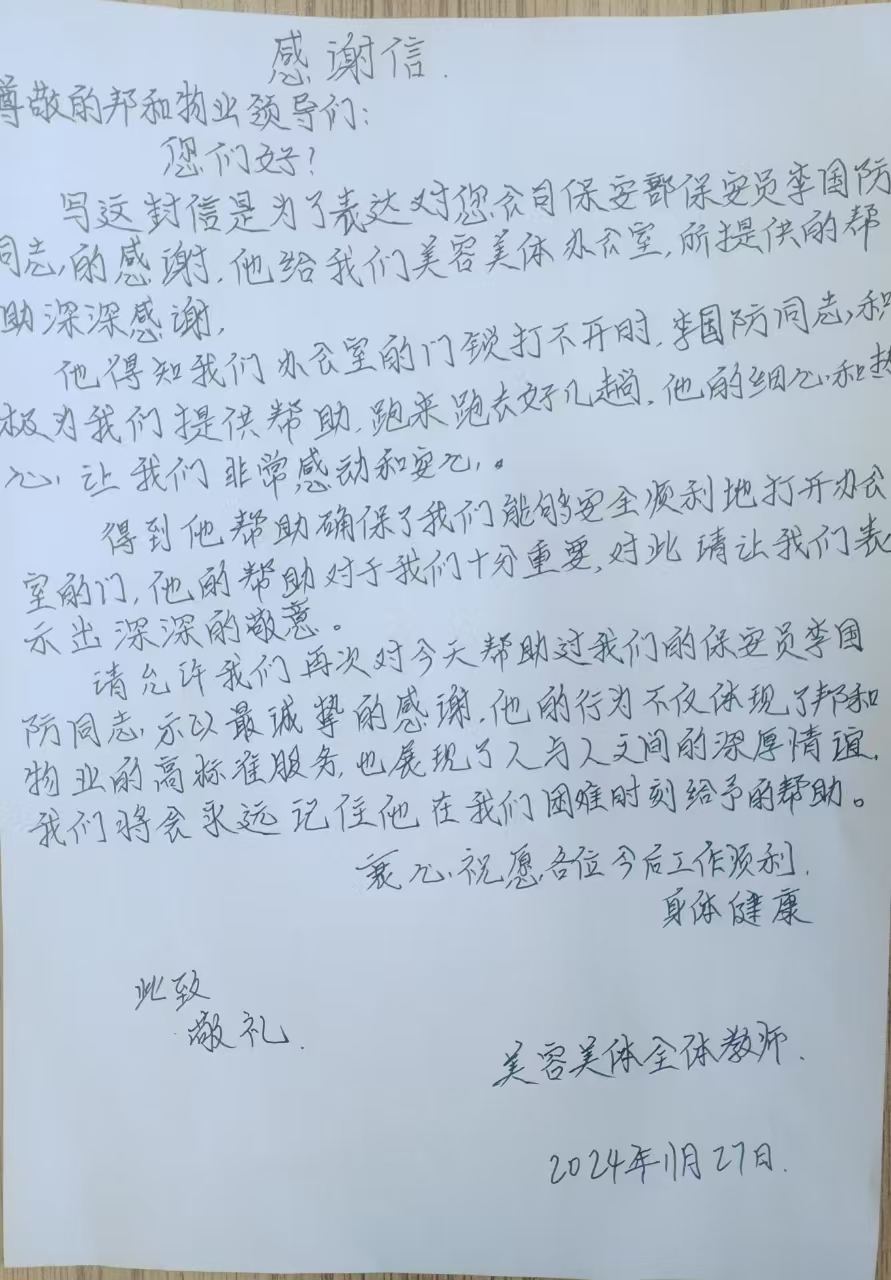 感谢信.
尊敬的邦和物业领导们:
您们好?
写这封信是为了表达对您公司保安部保安员李国防
同志,的感谢,他给我们美容美体办公室,所提供的帮
助深深感谢,
他得知我们办公室的门锁打不开时,李国防同志,积
极为我们提供帮助,跑来跑去好几趟,他的细心和热
心,让我们非常感动和安心,。
得到他帮助确保了我们能够安全顺利地打开办公
室的门,他的帮助对于我们十分重要,对此请让我们表
示出深深的敬意。
请允许我们再次对今天帮助过我们的保安员李国
防同志,示以最诚挚的感谢,他的行为不仅体现了邦和
物业的高标准服务,也展现了人与人之间的深厚情谊,
我们将会永远记住他在我们困难时刻给予的帮助。
衷心祝愿各位今后工作顺利,
身体健康
此致
敬礼.
美容美体全体教师.
2024年11月27日.